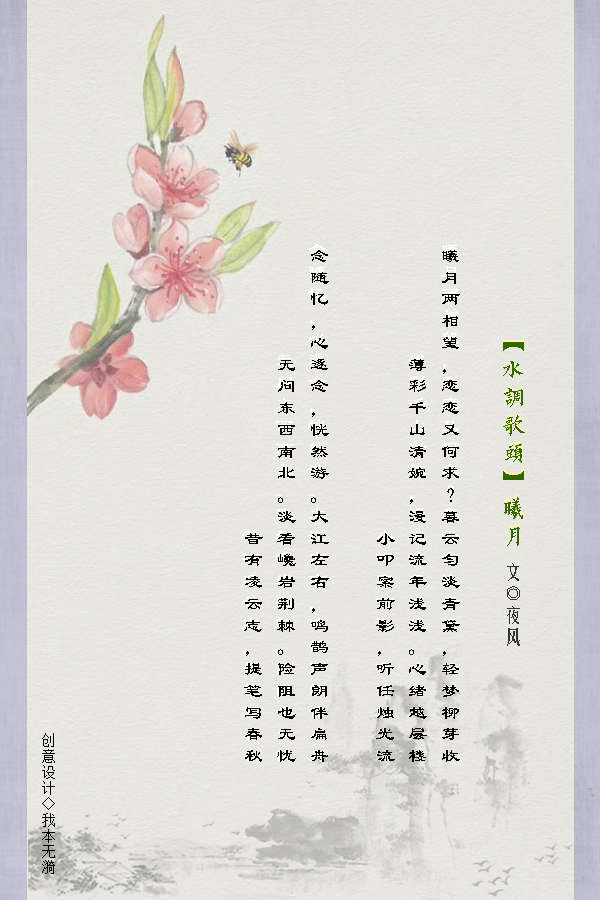 【水調歌頭】曦月 文◎夜风
曦月两相望，恋恋又何求？暮云匀淡青黛，轻梦柳芽收
薄彩千山清婉，漫记流年浅浅。心绪越层楼
小叩案前影，听任烛光流
念随忆，心逐念，恍然游。大江左右，鸣鹊声朗伴扁舟
无问东西南北。淡看巉岩荆棘。险阻也无忧
昔有凌云志，提笔写春秋
创意设计◇我本无漪